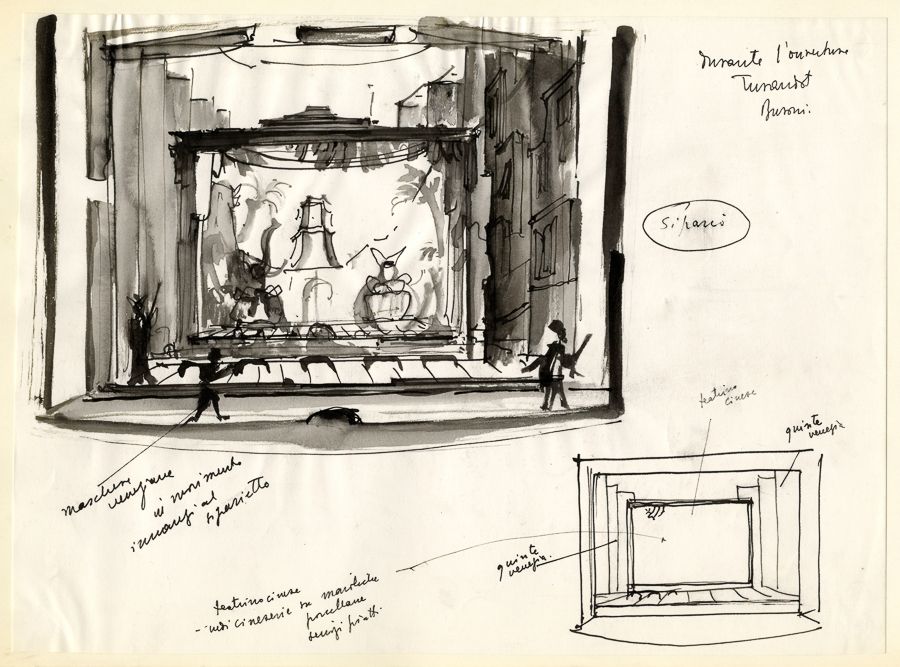 durante l'ouverture
Turandot
Busoni.
sipario
teatrino
cinese
quinte
venezia
maschere
veneziane
in movimento
innanzi al
siparietto
quinte
venezia.
teatrino cinese
- vedi cineserie su maioliche
porcellane
servizi piatti.